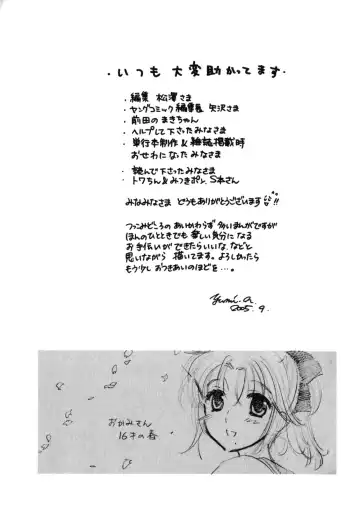 ・いつも 大変助かってます・
・編集 松澤さま
・ヤングコミック編集長 矢沢さま
・前田のまきちゃん
・ヘルプして下さったみなさま
・単行本制作&雑誌掲載時
おせわになったみなさま
・読んで下さったみなさま
・トワちん&みつきポン、S本さん
みなみなさま どうもありがとうございます!!
ツッコみどころのあいかわらず 多いまんがですが
ほんのひとときでも 楽しい気分になる
お手伝いができたらいいな、などと
思いながら 描いてます。よろしかったら
もう少しおつきあいのほどを…。
2005.9.
おかみさん
16才の春